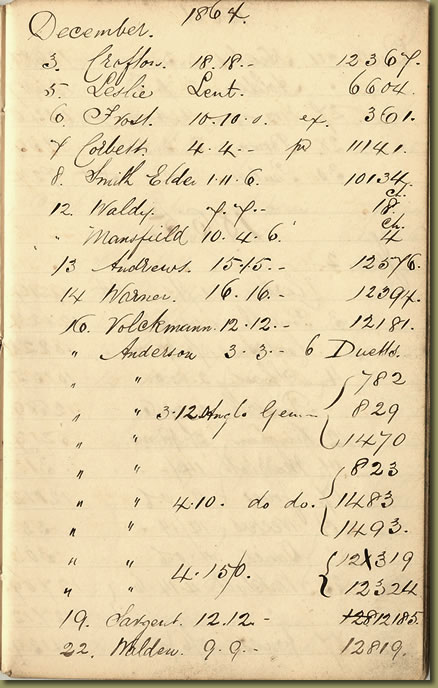 1864.
December.
3. Crofton. 18.18.- 12367.
5 Leslie Lent. 6604.
6. Frost. 10.10.0. ex. 361.
7 Corbett. 4.4.- pr 11141.
8. Smith Elder 1.11.6. 10134.
12. Waldy. 7.7.- ch. 18.
" Mansfield 10.4.6 ch. 4
13 Andrews. 15.15.- 12576.
14 Warner. 16.16.- 12394.
16. Volckmann. 12.12.- 12181.
" Anderson 3.3.- 6 Duetts.
" " 782
" " 3.12. Anglo Gem- 829
" " 1470
" " 823
" " 4.10. do do. 1483
" " 1493.
" " 4.15/0. 12319
" " 12324
19. Sargent. 12.12.- 12812185.
22. Walden. 9.9.- 12819.